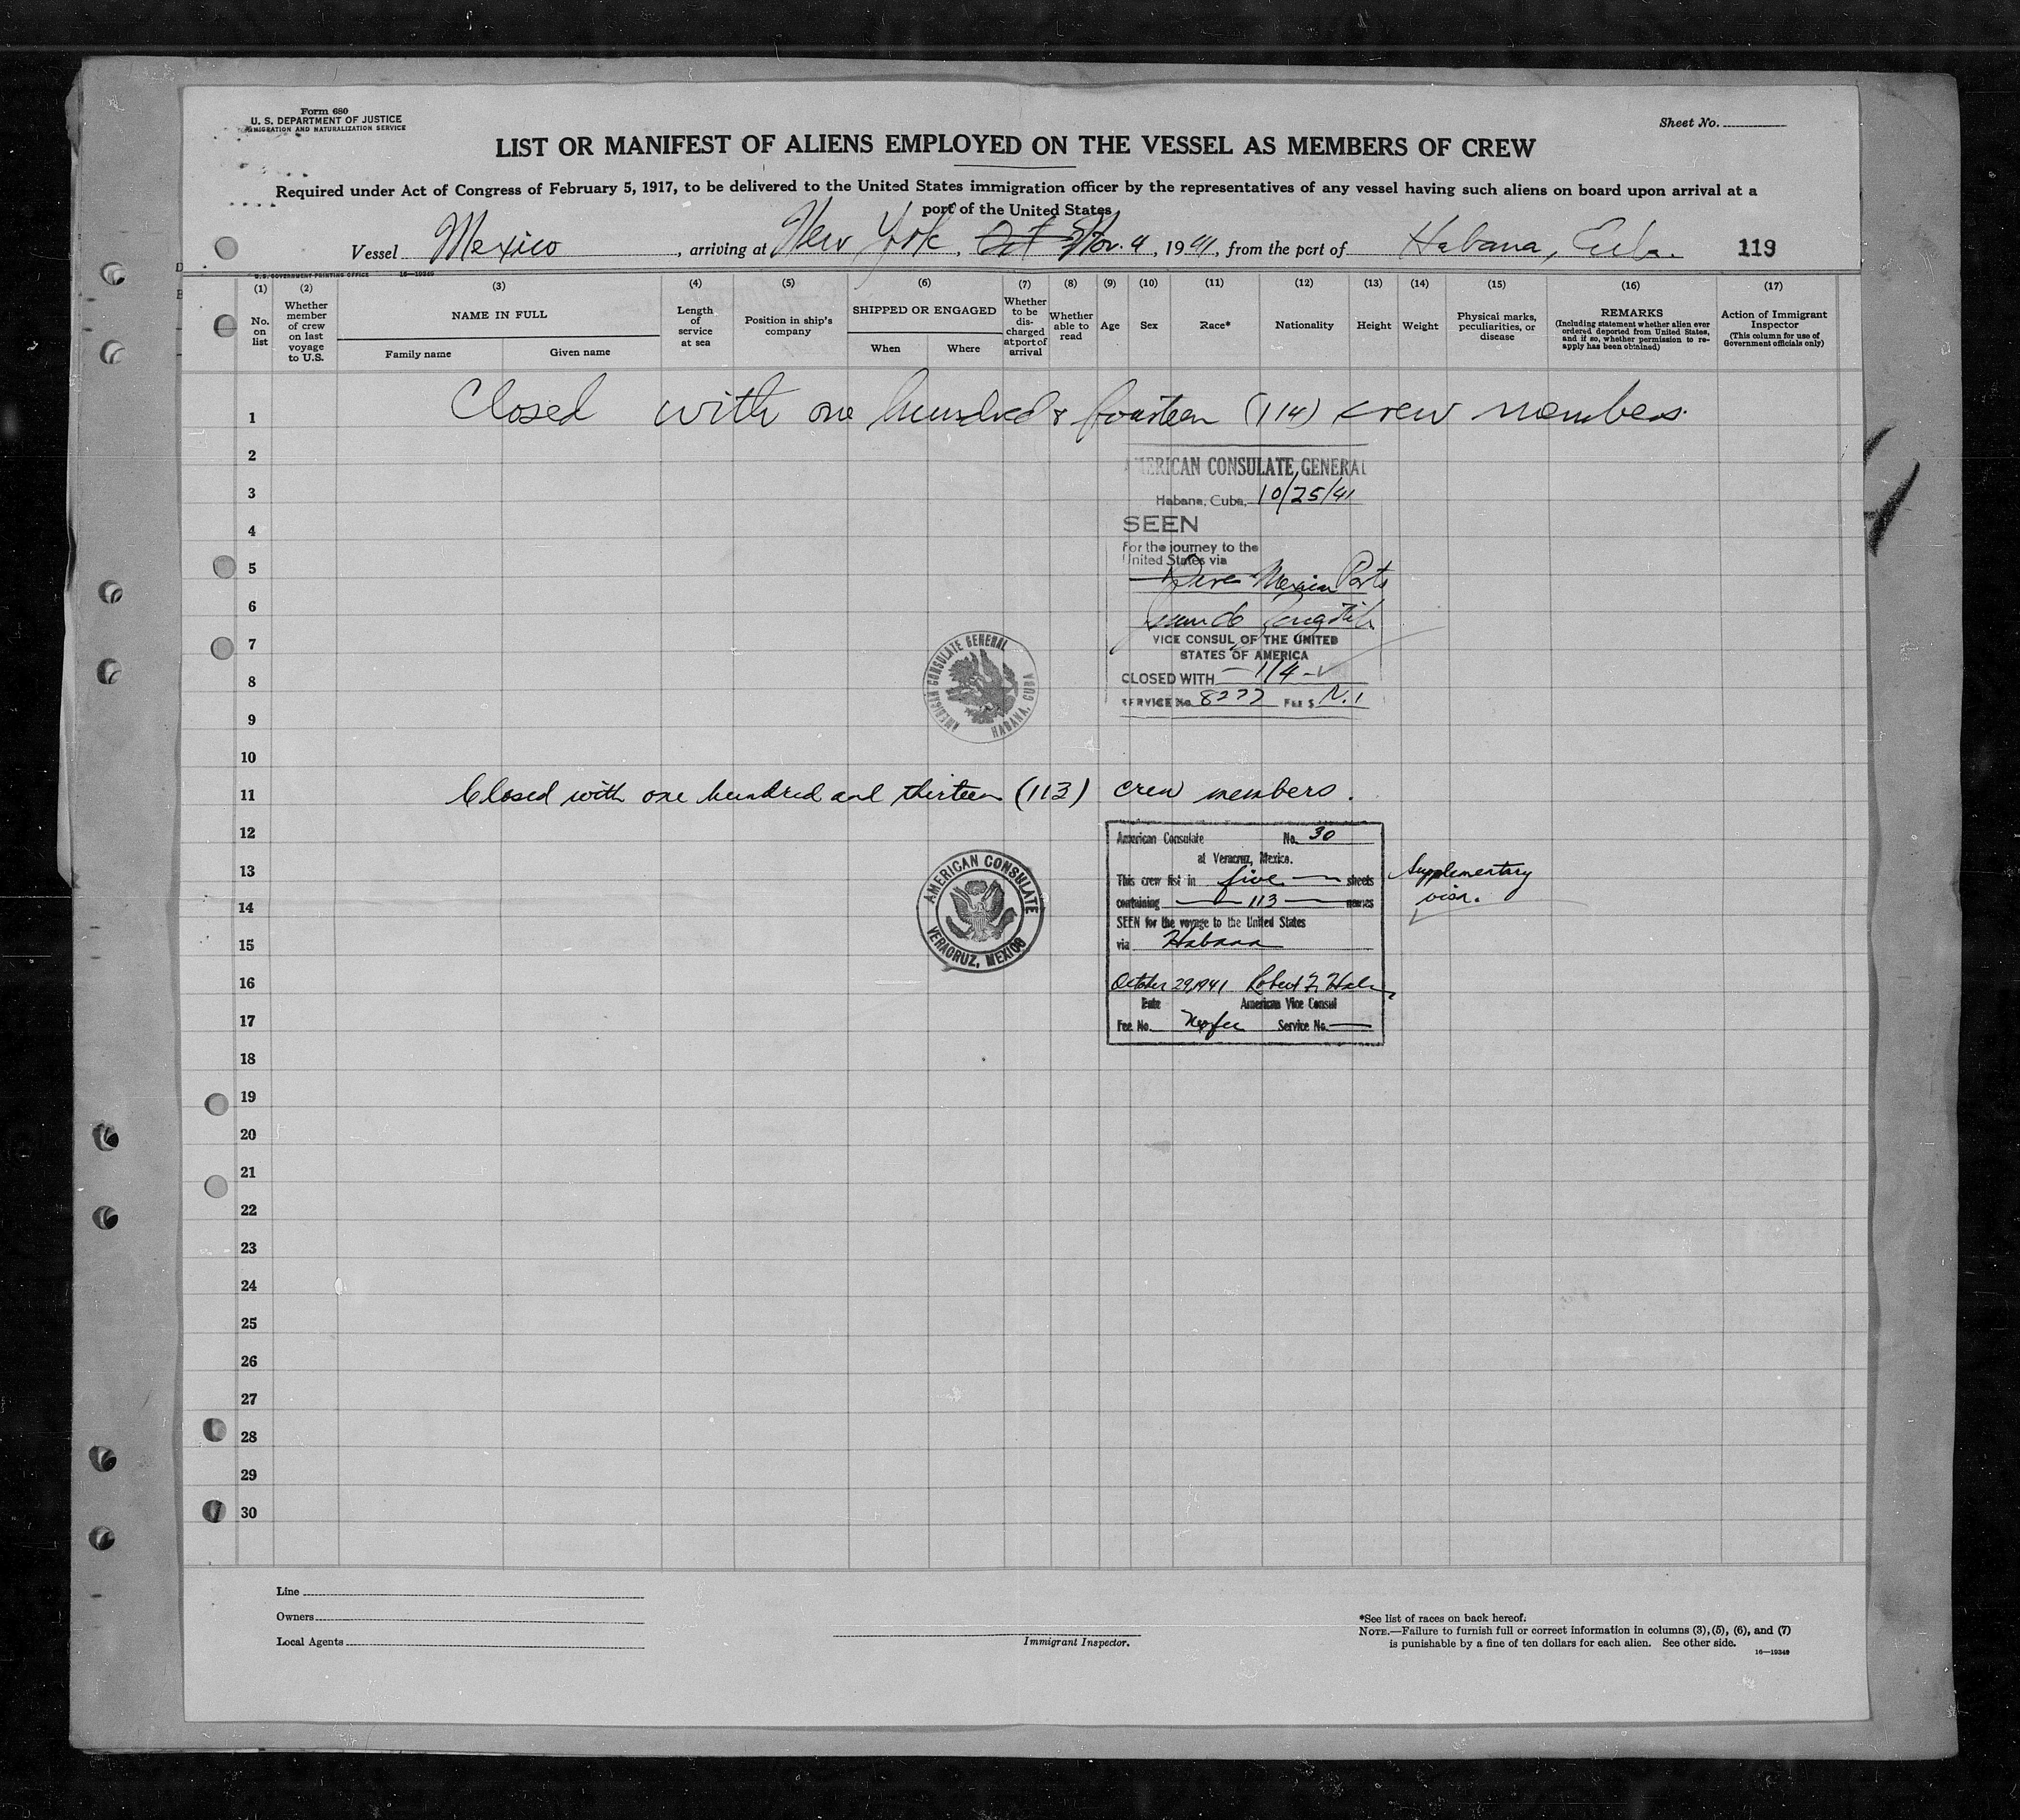 Form 680
U. S. DEPARTMENT OF JUSTICE
IMMIGRATION AND NATURALIZATION SERVICE
Sheet No.
LIST OR MANIFEST OF ALIENS EMPLOYED ON THE VESSEL AS MEMBERS OF CREW
Required under Act of Congress of February 5, 1917, to be delivered to the United States immigration officer by the representatives of any vessel having such aliens on board upon arrival at a
port of the United States
Vessel Mexico, arriving at New York, Oct Nov. 4, 1941, from the port of Habana, Cuba. 119
U.S. GOVERNMENT PRINTING OFFICE 16—19349
(1) (2) (3) (4) (5) (6) (7) (8) (9) (10) (11) (12) (13) (14) (15) (16) (17)
No. on list
Whether member of crew on last voyage to U.S.
NAME IN FULL
Family name
Given name
Length of service at sea
Position in ship's company
SHIPPED OR ENGAGED
When
Where
Whether to be discharged at port of arrival
Whether able to read
Age
Sex
Race*
Nationality
Height
Weight
Physical marks, peculiarities, or disease
REMARKS
(Including statement whether alien ever ordered deported from United States, and if so, whether permission to reapply has been obtained)
Action of Immigrant Inspector
(This column for use of Government officials only)
1 Closed with one hundred & fourteen (114) crew members.
2
AMERICAN CONSULATE GENERAL
3
Habana, Cuba, 10/25/41
4
SEEN
For the journey to the
United States via
5
Mexican Ports
6
7
VICE CONSUL OF THE UNITED
STATES OF AMERICA
8
CLOSED WITH — 114 —
SERVICE No. 8277 FEE $ N.1
AMERICAN CONSULATE GENERAL HABANA, CUBA
9
10
11 Closed with one hundred and thirteen (113) crew members.
12
American Consulate No. 30
at Veracruz, Mexico.
13
This crew list in five sheets
containing 113 names
14
SEEN for the voyage to the United States
15
via Habana
Supplementary
visa.
AMERICAN CONSULATE VERACRUZ, MEXICO
16
October 29, 1941 Robert
Date American Vice Consul
17
Fee No. No fee Service No.
18
19
20
21
22
23
24
25
26
27
28
29
30
Line
Owners
Local Agents
Immigrant Inspector.
*See list of races on back hereof.
NOTE.—Failure to furnish full or correct information in columns (3), (5), (6), and (7)
is punishable by a fine of ten dollars for each alien. See other side.
16—19349